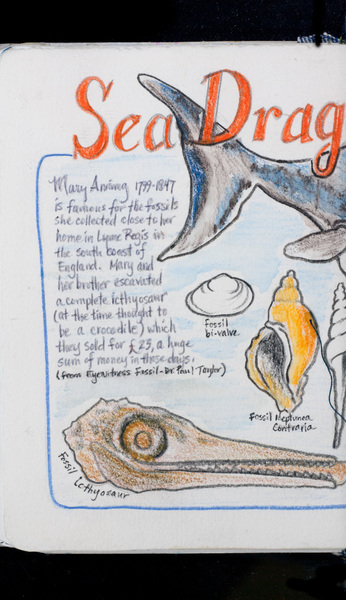 Sea Drag
Mary Anning 1799-1847
is famous for the fossils
she collected close to her
home in Lyme Regis in
the south coast of
England. Mary and
her brother escavated
a complete icthyosaur
(at the time thought to
be a crocodile) which
they sold for £23, a huge
sum of money in those days.
(from Eyewitness Fossil-Dr. Paul Taylor)
Fossil
bi-valve.
Fossil Neptunea
Contraria
Fossil icthyosaur